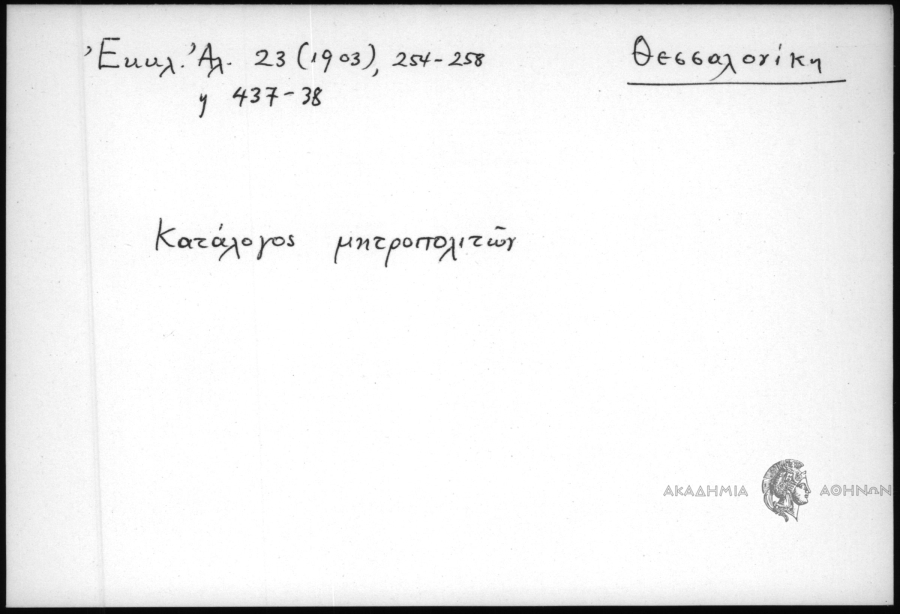 Ἐκκλ. Ἀλ. 23 (1903), 254-258
Θεσσαλονίκη
437-38
Κατάλογος μητροπολιτῶν
ΑΚΑΔΗΜΙΑ ΑΘΗΝΩΝ